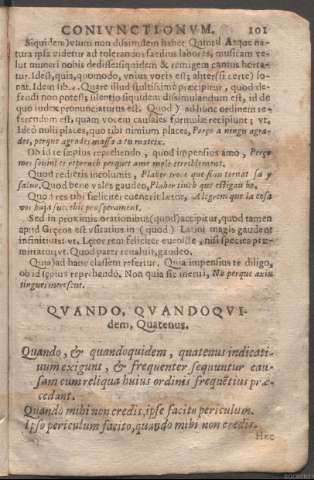 CONIVNCTIONVM. 101
Siquidem) vsum non dissimilem habet Quintil Atque na-
tura ipsa videtur ad tolerandos facilius labores, musicam ve-
lut muneri nobis dedisse: siquidem & remigem cantus horta-
tur. Idest, quia, quomodo, vnius vocis est; alite
nat. Idem lib. Quare illud stultissimo præcipitur, quod de-
fendi non potest; silentio siquidem dissimulandum est, id de
quo iudex pronunciaturus est. Quod) adhunc ordinem re-
ferendum est, quam vocem causales formulæ recipiunt; vt.
Ideo nulli places, quo tibi nimium places, Perço a ningu agra-
des, perque agrades massa a tu mateix.
Ob id te sæpius reprehendo, quod impensius amo, Perço
mes souint et reperuch perquet ame molt
Quod redieris incolumis, Plaher que sian tornat sa y
saluo. Quod bene vales gaudeo, Plaher tinch que estigau bo.
Quod res tibi feliciter euenerit lætor, Alegrem que la cosa
vos haja succehit prosperament.
Sed in proximis orationibus (quod) accipitur, quod tamen
apud Græcos est vsitatius in (quod) Latini magis gaudent
infinitiuis: vt. Lætor rem feliciter euenisse, nisi species præ-
mittatur; vt. Quod pater conualuit, gaudeo.
Quia) ad hanc classem refertur. Quia impensius te diligo,
ob id sæpius reprehendo. Non quia sic merui, No perque axiu
tingues merescut.
QVANDO, QVANDOQVI-
dem, Quatenus.
Quando, & quandoquidem, quatenus indicati-
uum exigunt, & frequenter sequuntur cau-
sam cum reliqua huius ordinis frequētius præ-
cedant.
Quando mihi non credis, ipse facito periculum.
Ipso periculum facito, quando mihi non credis.
Hæc